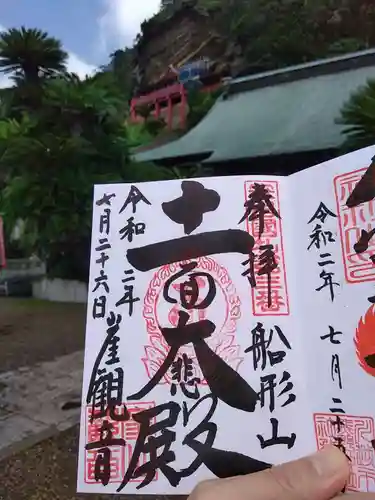 令和二年
七月二十
奉拝 船形山
十一面大悲殿
令和二年
七月二十六日
崖観音